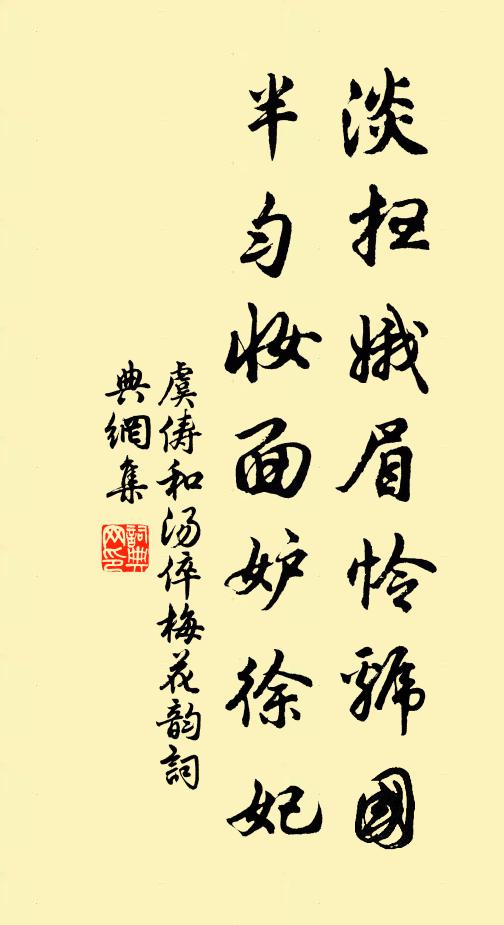 淡扫娥眉怜虢國
半匀妆面妒徐妃
虞俦和汤倅梅花韵詞
典網集
詞典
网印